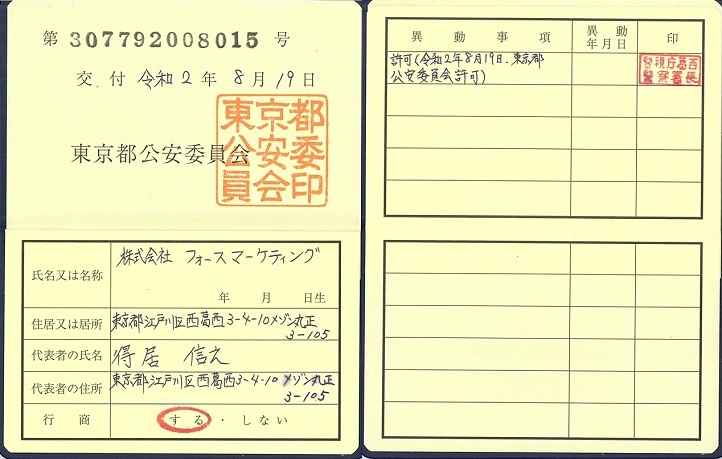 第 307792008015 号
交付 令和2年8月19日
東京都公安委員会
東京都
公安委
員会印
氏名又は名称 株式会社 フォースマーケティング
年 月 日生
住居又は居所 東京都江戸川区西葛西3-4-10メゾン丸正
3-105
代表者の氏名 得居 信之
代表者の住所 東京都江戸川区西葛西3-4-10 メゾン丸正
3-105
行商 する・しない
異動事項 異動年月日 印
許可(令和2年8月19日、東京都
公安委員会許可)
警視庁葛西
警察署長